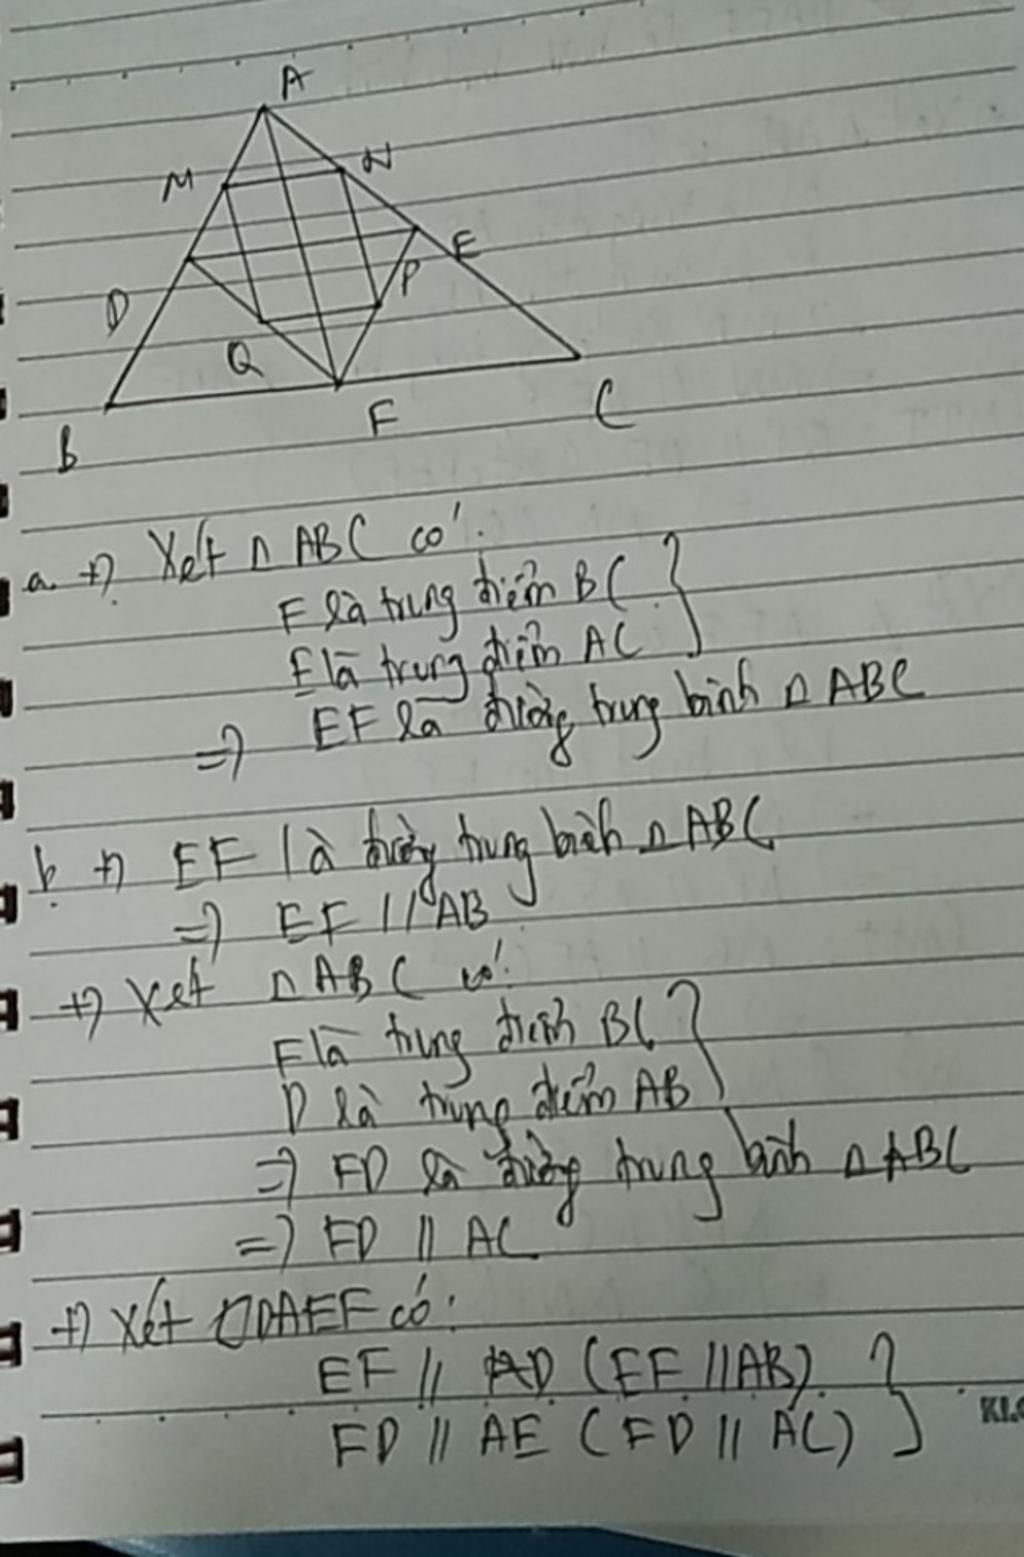 A
M
N
D
E
P
Q
B
F
C
a. +) Xét △ ABC có:
F là trung điểm BC }
E là trung điểm AC
=) EF là đường trung bình △ ABC
b. +) EF là đường trung bình △ ABC
=) EF // AB
+) Xét △ ABC có:
F là trung điểm BC }
D là trung điểm AB
=) FD là đường trung bình △ ABC
=) FD // AC
+) Xét ▱DAEF có:
EF // AD (EF // AB) }
FD // AE (FD // AC)